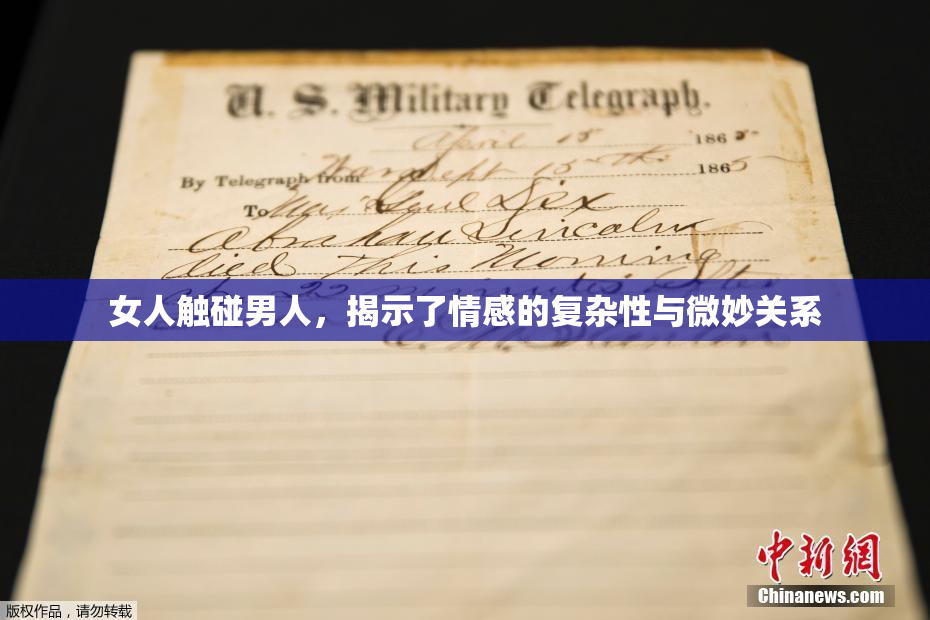 U. S. Military Telegraph.
April 15 1865
By Telegraph from War Dept 15th 1865
To Maj Genl Dix
Abraham Lincoln
died This Morning
at 22 minutes after
女人触碰男人，揭示了情感的复杂性与微妙关系
E. M. Stanton
中新網
Chinanews.com
版权作品，请勿转载